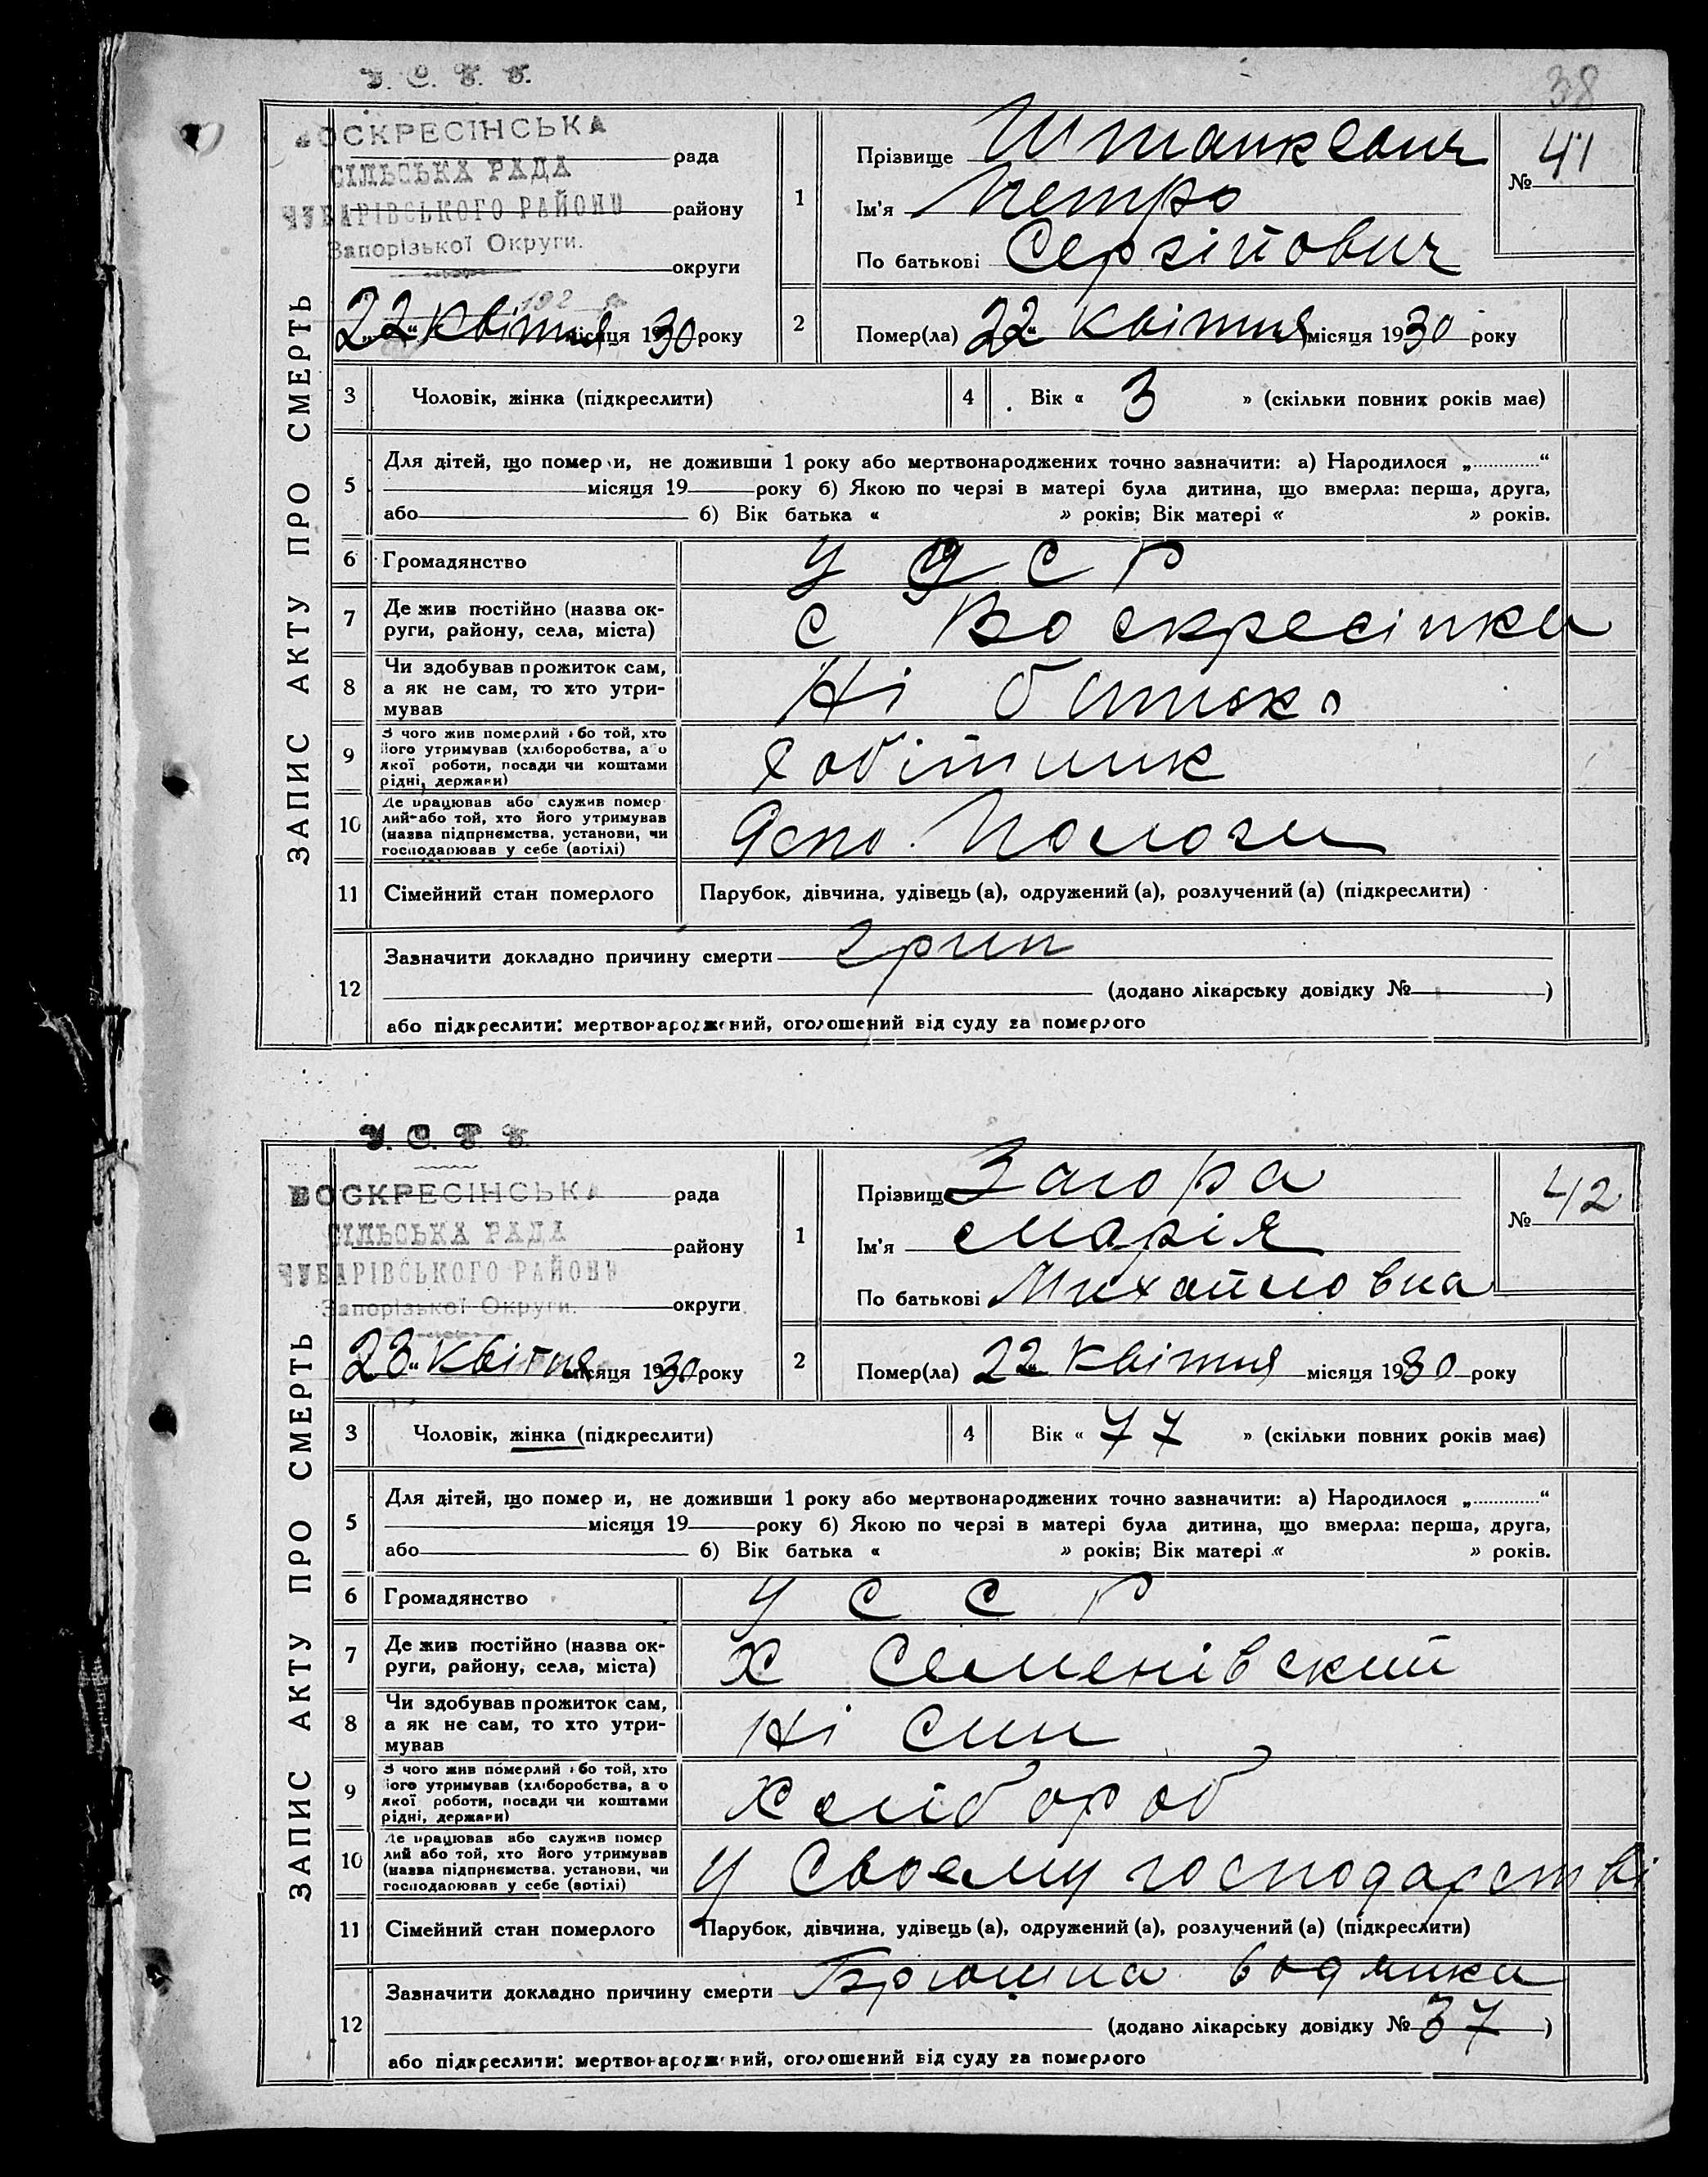 У. С. Р. Р.
38
ВОСКРЕСІНСЬКА рада
СІЛЬСЬКА РАДА
ЧУБАРІВСЬКОГО РАЙОНУ району
Запорізької Округи.
округи
192
22 " Квітня місяця 1930 року
ЗАПИС АКТУ ПРО СМЕРТЬ
1 Прізвище
Ім'я Петро
По батькові Сергійович
№ 41
2 Помер(ла) 22 " Квітня місяця 1930 року
3 Чоловік, жінка (підкреслити)
4 Вік « 3 » (скільки повних років має)
5 Для дітей, що померли, не доживши 1 року або мертвонароджених точно зазначити: а) Народилося „ “
місяця 19 року б) Якою по черзі в матері була дитина, що вмерла: перша, друга,
або б) Вік батька « » років; Вік матері « » років.
6 Громадянство У С Р
7 Де жив постійно (назва ок-
руги, району, села, міста) с Воскресінка
8 Чи здобував прожиток сам,
а як не сам, то хто утри-
мував Ні батько
9 З чого жив померлий або той, хто
його утримував (хліборобства, або
якої роботи, посади чи коштами
рідні, держави) робітник
10 Де працював або служив помер
лий або той, хто його утримував
(назва підприємства, установи, чи
господарював у себе (артілі) Пологи
11 Сімейний стан померлого Парубок, дівчина, удівець (а), одружений (а), розлучений (а) (підкреслити)
12 Зазначити докладно причину смерти грип
(додано лікарську довідку № )
або підкреслити: мертвонароджений, оголошений від суду за померлого
У. С. Р. Р.
ВОСКРЕСІНСЬКА рада
СІЛЬСЬКА РАДА
району
ЧУБАРІВСЬКОГО РАЙОНУ
Запорізької Округи. округи
23 " Квітня місяця 1930 року
ЗАПИС АКТУ ПРО СМЕРТЬ
1 Прізвище Загора
Ім'я Марія
По батькові Михайловна
№ 42
2 Помер(ла) 22 " Квітня місяця 1930 року
3 Чоловік, жінка (підкреслити)
4 Вік « 77 » (скільки повних років має)
5 Для дітей, що померли, не доживши 1 року або мертвонароджених точно зазначити: а) Народилося „ “
місяця 19 року б) Якою по черзі в матері була дитина, що вмерла: перша, друга,
або б) Вік батька « » років; Вік матері « » років.
6 Громадянство У С С Р
7 Де жив постійно (назва ок-
руги, району, села, міста) х Семенівский
8 Чи здобував прожиток сам,
а як не сам, то хто утри-
мував Ні Син
9 З чого жив померлий або той, хто
його утримував (хліборобства, або
якої роботи, посади чи коштами
рідні, держави) Хлібороб
10 Де працював або служив помер
лий або той, хто його утримував
(назва підприємства, установи, чи
господарював у себе (артілі) У Своему господарстві
11 Сімейний стан померлого Парубок, дівчина, удівець (а), одружений (а), розлучений (а) (підкреслити)
12 Зазначити докладно причину смерти Брюшна водянка
(додано лікарську довідку № 37 )
або підкреслити: мертвонароджений, оголошений від суду за померлого